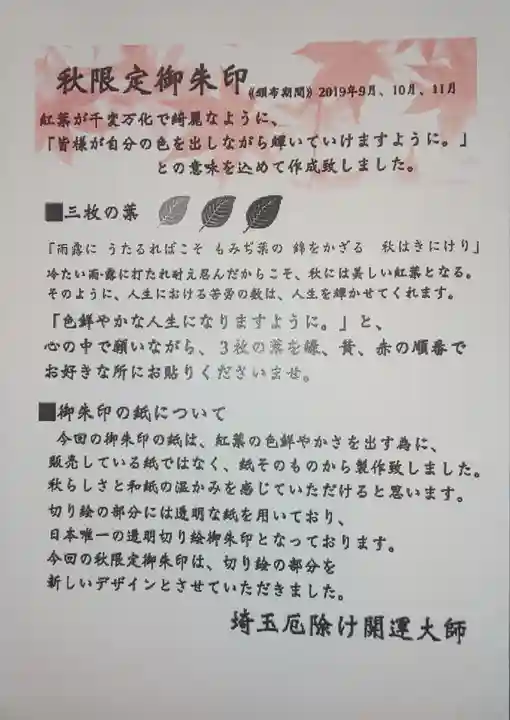 秋限定御朱印
《頒布期間》2019年9月、10月、11月
紅葉が千変万化で綺麗なように、
「皆様が自分の色を出しながら輝いていけますように。」
との意味を込めて作成致しました。
■三枚の葉
「雨露に うたるればこそ もみぢ葉の 錦をかざる 秋はきにけり」
冷たい雨・露に打たれ耐え忍んだからこそ、秋には美しい紅葉となる。
そのように、人生における苦労の数は、人生を輝かせてくれます。
「色鮮やかな人生になりますように。」と、
心の中で願いながら、3枚の葉を緑、黄、赤の順番で
お好きな所にお貼りくださいませ。
■御朱印の紙について
今回の御朱印の紙は、紅葉の色鮮やかさを出す為に、
販売している紙ではなく、紙そのものから製作致しました。
秋らしさと和紙の温かみを感じていただけると思います。
切り絵の部分には透明な紙を用いており、
日本唯一の透明切り絵御朱印となっております。
今回の秋限定御朱印は、切り絵の部分を
新しいデザインとさせていただきました。
埼玉厄除け開運大師